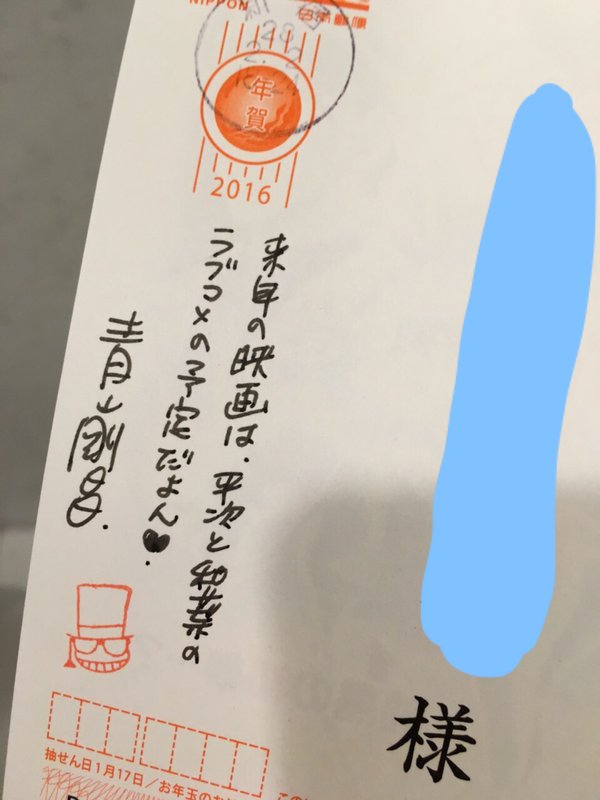 NIPPON
日本郵便
年賀
2016
来年の映画は、平次と和葉の
ラブコメの予定だよん♥.
青山剛昌.
様
抽せん日1月17日/お年玉のお